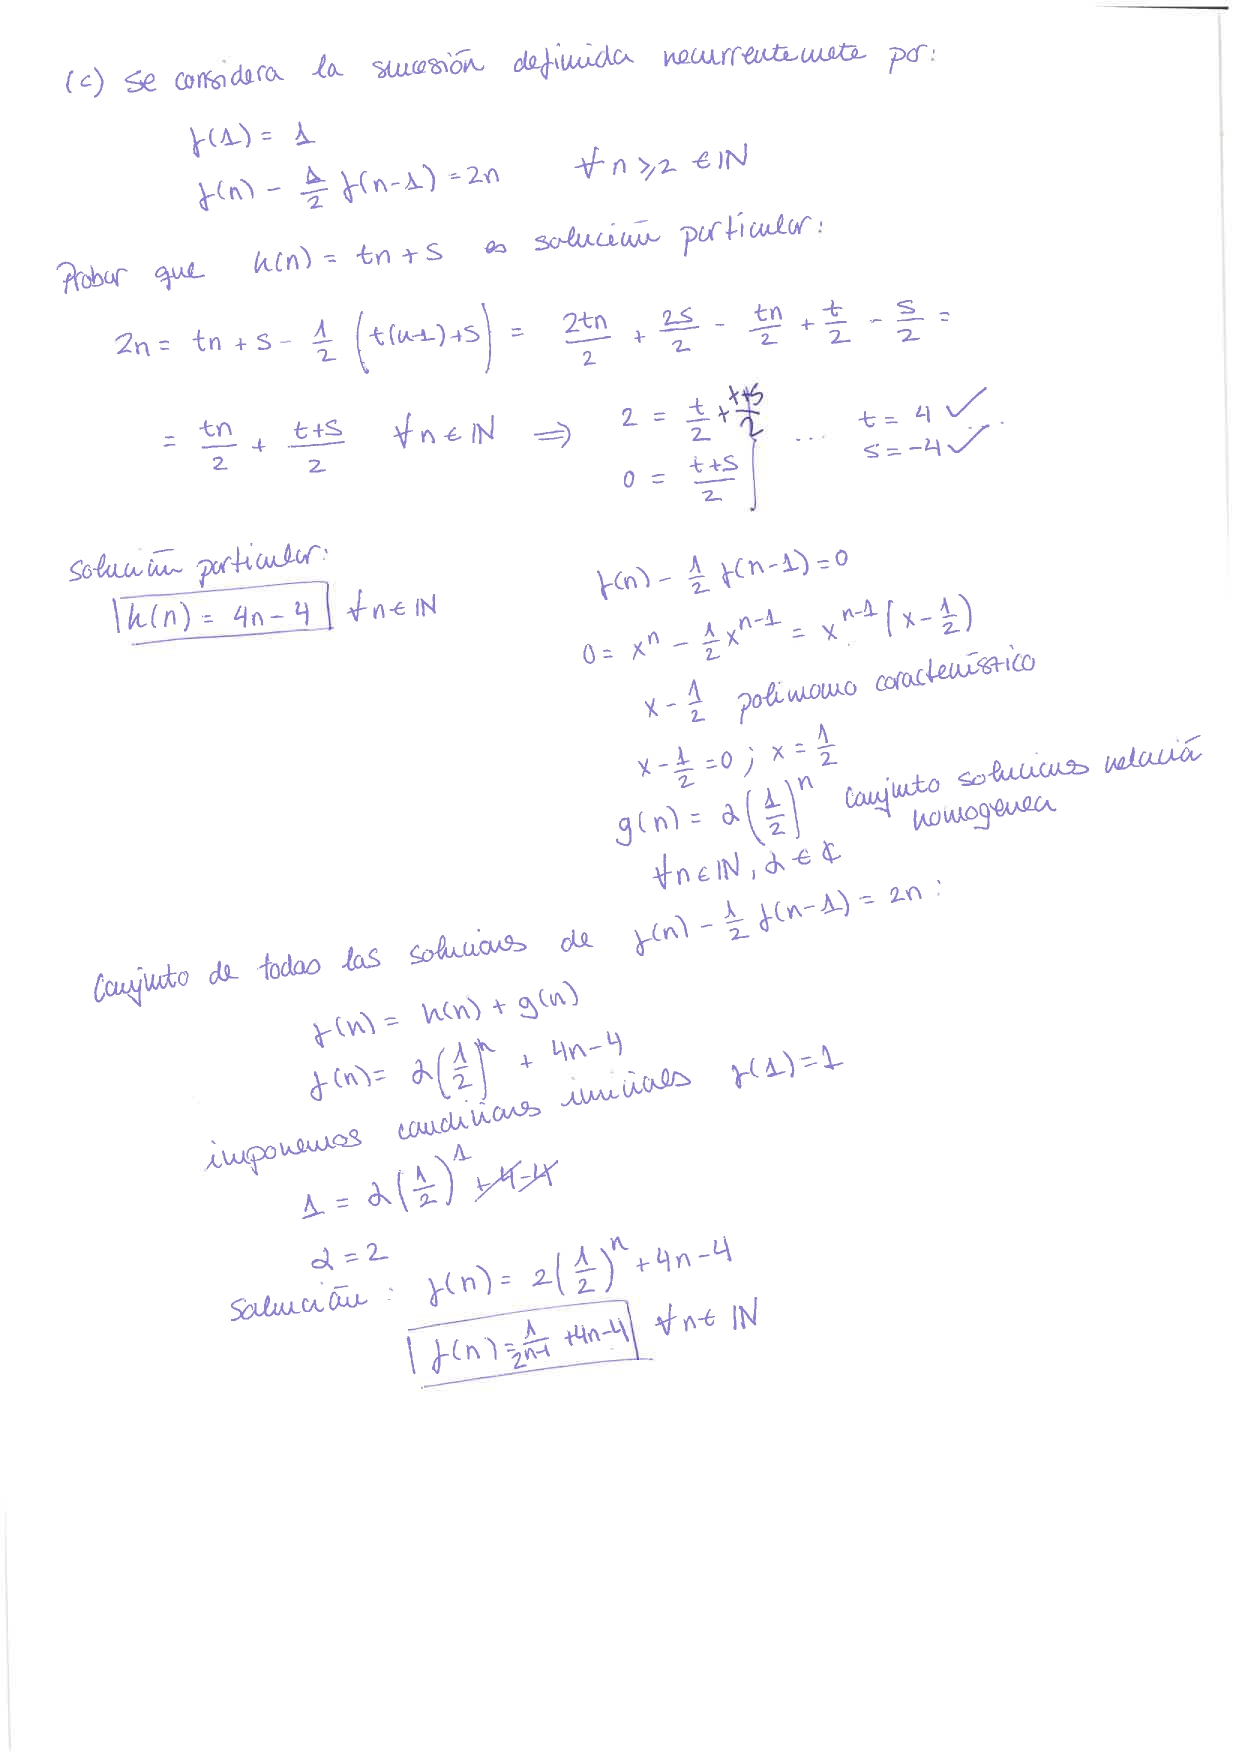 (c) Se considera la sucesión definida recurrentemete por:
f(1) = 1
f(n) - 1/2 f(n-1) = 2n ∀ n ≥ 2 ∈ ℕ
Probar que h(n) = tn + s es solución particular:
2n = tn + s - 1/2 (t(n-1)+s) = 2tn/2 + 2s/2 - tn/2 + t/2 - s/2 =
= tn/2 + t+s/2 ∀n∈ℕ ⇒ 2 = t/2 + t+s/2 ... t = 4 ✓
0 = t+s/2 s = -4 ✓
Solución particular:
h(n) = 4n-4 ∀n∈ℕ
f(n) - 1/2 f(n-1) = 0
0 = x^n - 1/2 x^(n-1) = x^(n-1) (x - 1/2)
x - 1/2 polinomo característico
x - 1/2 = 0 ; x = 1/2
g(n) = α(1/2)^n Conjunto soluciones relación
homogenea
∀n∈ℕ, α∈ℂ
Conjunto de todas las soluciones de f(n) - 1/2 f(n-1) = 2n :
f(n) = h(n) + g(n)
f(n) = α(1/2)^n + 4n-4
imponemos condiciones iniciales f(1) = 1
1 = α(1/2)^1 + 4-4
α = 2
Solución : f(n) = 2(1/2)^n + 4n-4
f(n) = 1/2^(n-1) + 4n-4 ∀n∈ℕ